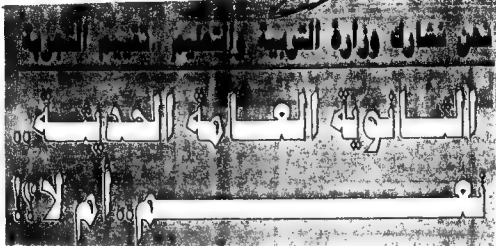 نحن نشارك وزارة التربية والتعليم
الثانوية العامة الحديثة ..
نعم .. أم لا ؟!!